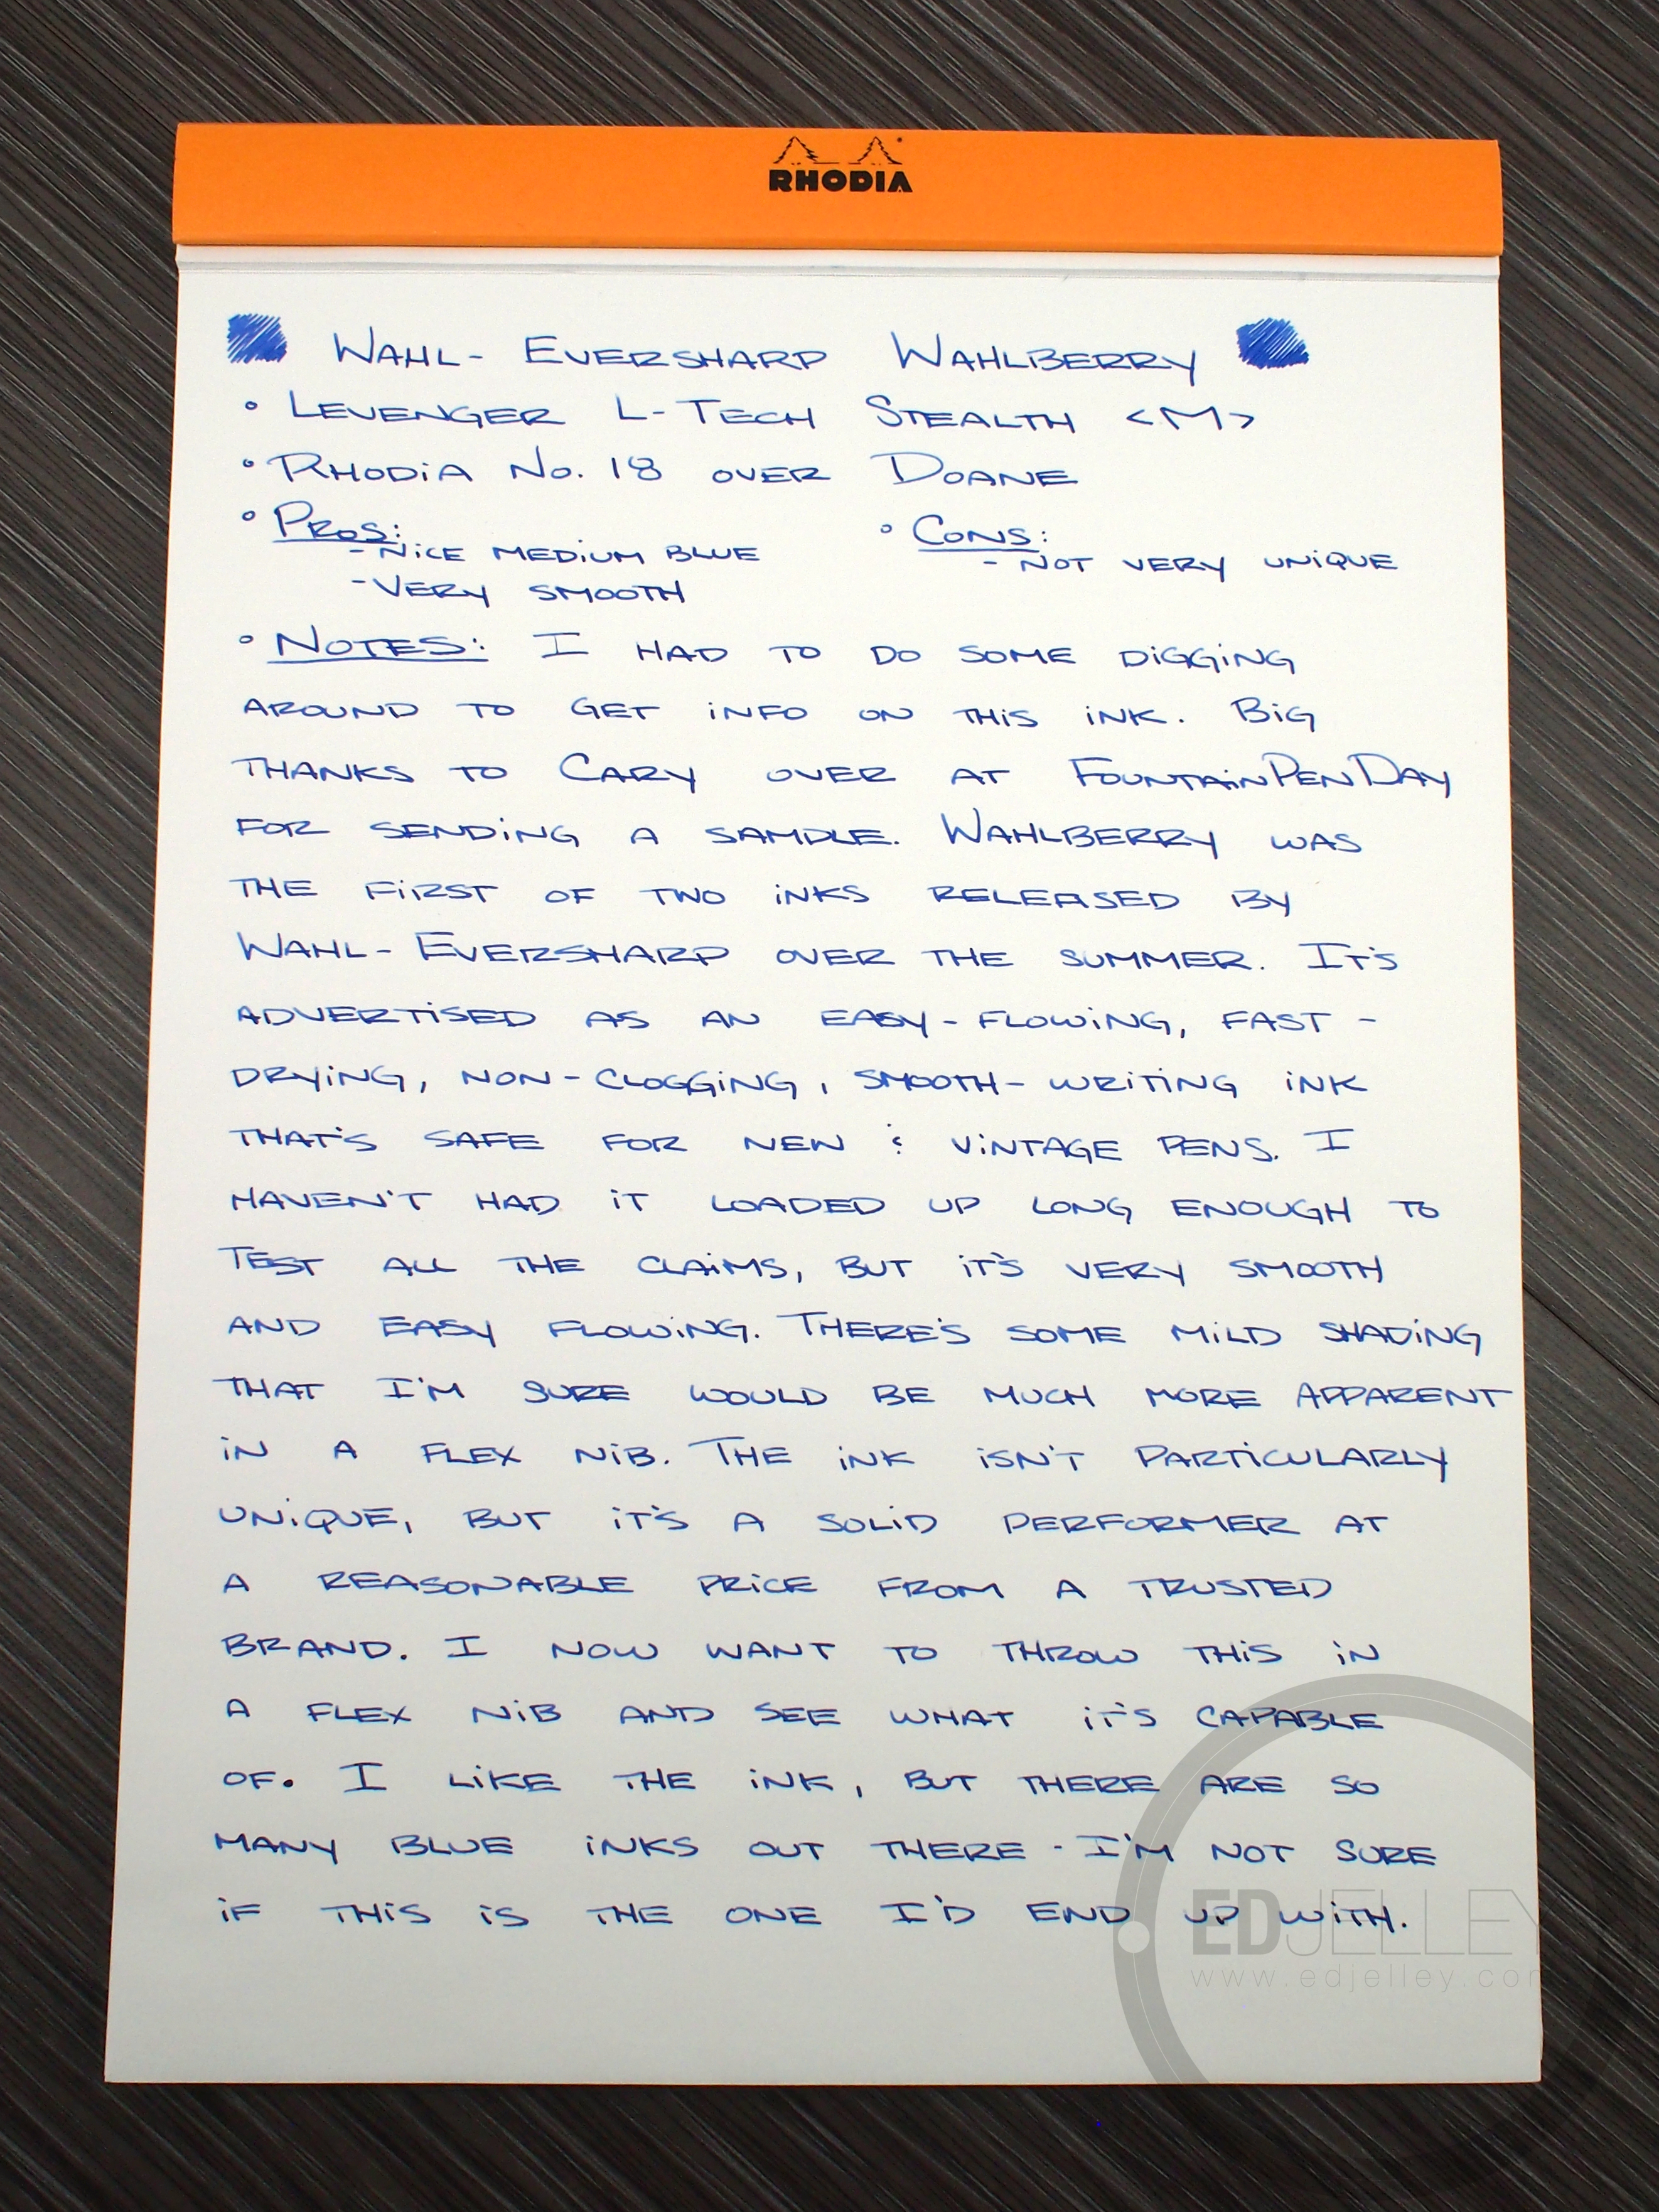 RHODIA
WAHL-EVERSHARP WAHLBERRY
° LEVENGER L-TECH STEALTH <M>
° RHODIA No. 18 OVER DOANE
° PROS:
- NICE MEDIUM BLUE
- VERY SMOOTH
° CONS:
- NOT VERY UNIQUE
° NOTES: I HAD TO DO SOME DIGGING
AROUND TO GET INFO ON THIS INK. BIG
THANKS TO CARY OVER AT FOUNTAINPENDAY
FOR SENDING A SAMPLE. WAHLBERRY WAS
THE FIRST OF TWO INKS RELEASED BY
WAHL-EVERSHARP OVER THE SUMMER. IT'S
ADVERTISED AS AN EASY-FLOWING, FAST-
DRYING, NON-CLOGGING, SMOOTH-WRITING INK
THAT'S SAFE FOR NEW & VINTAGE PENS. I
HAVEN'T HAD IT LOADED UP LONG ENOUGH TO
TEST ALL THE CLAIMS, BUT IT'S VERY SMOOTH
AND EASY FLOWING. THERE'S SOME MILD SHADING
THAT I'M SURE WOULD BE MUCH MORE APPARENT
IN A FLEX NIB. THE INK ISN'T PARTICULARLY
UNIQUE, BUT IT'S A SOLID PERFORMER AT
A REASONABLE PRICE FROM A TRUSTED
BRAND. I NOW WANT TO THROW THIS IN
A FLEX NIB AND SEE WHAT IT'S CAPABLE
OF. I LIKE THE INK, BUT THERE ARE SO
MANY BLUE INKS OUT THERE - I'M NOT SURE
IF THIS IS THE ONE I'D END UP WITH.
EDJELLEY
www.edjelley.com